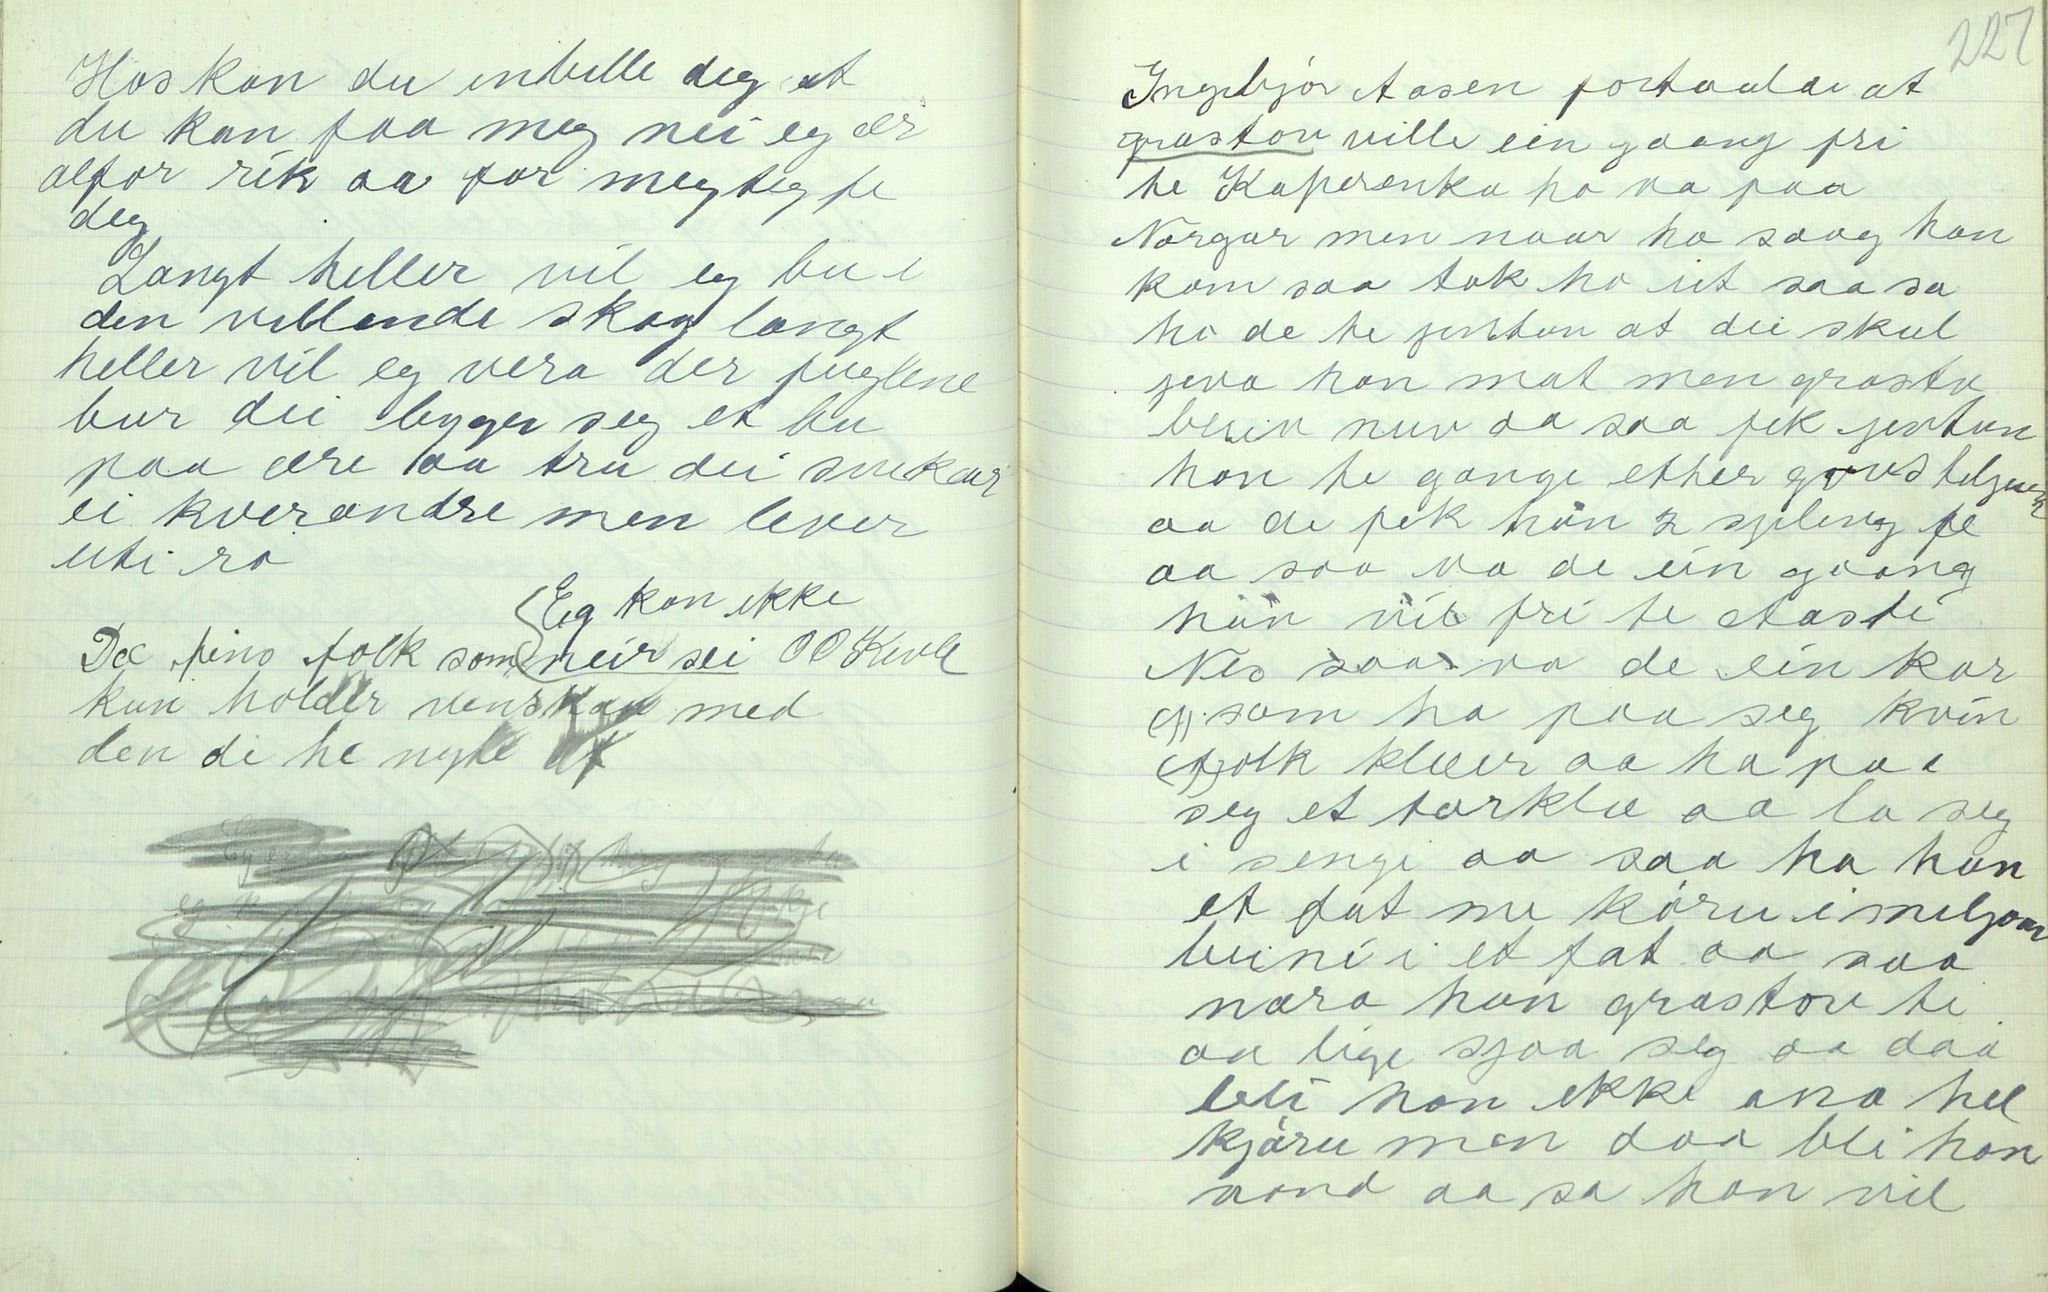 Hos kan du inbille deg at
du kan faa meg nei eg ær
alfor rik aa for megtig fe
deg
Langt heller vil eg bu i
den villande skog langt
heller vil eg vera der fuglene
bur dei bygger seg et bu
paa ære aa tru dei svikær
ei kverandre men lever
uti ro
Eg kan ikke
neir sei OO Kivle
Dæ fins folk som
kun holder venskap med
den di he nytte af
227
Ingebjør Aasen fortaalde at
graston ville ein gaang fri
te Kaperenka ho va paa
Norgar men naar ho saag han
kom saa tok ho ut saa sa
ho de te jentun at dei skul
jeva han mat men grastu
saa fek jentun
han te gange etter
aa de fek han 2 fe
aa saa va de ein gaang
han vil fri te Aasti
Nes saa va de ein kar
som ha paa seg kvin
folk klæer aa ha paa
seg et tørklæ aa la seg
i sengi aa saa ha han
et fat me køru i meljom
beini i et fat aa saa
nara han graston te
aa lige sjaa seg aa daa
bli han ikke ana hel
kjøru men daa bli han
vond aa sa han vil